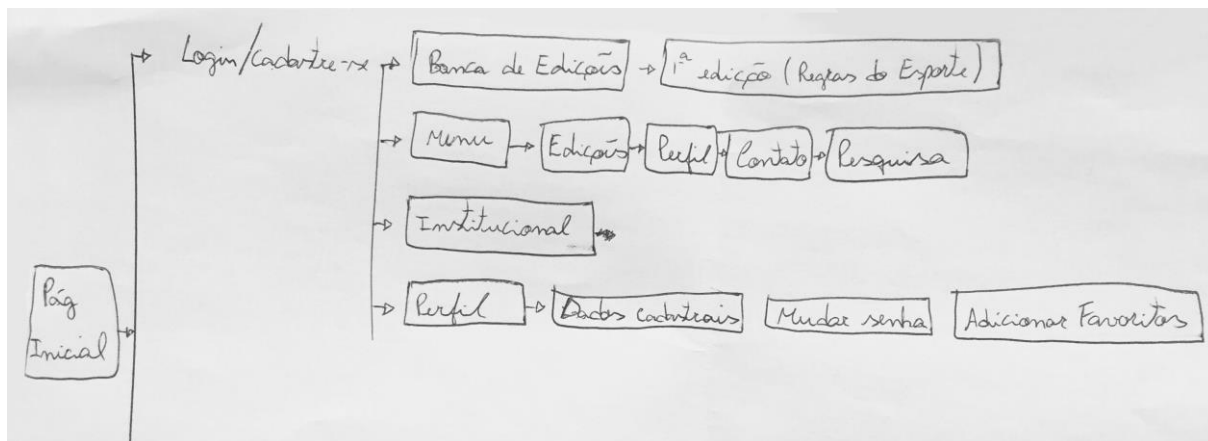 Login/cadastre-se
Banca de Edições
1ª edição (Regras do Esporte)
Menu
Edições
Perfil
Contato
Pesquisa
Institucional
Perfil
Dados cadastrais
Mudar senha
Adicionar Favoritos
Pág
Inicial